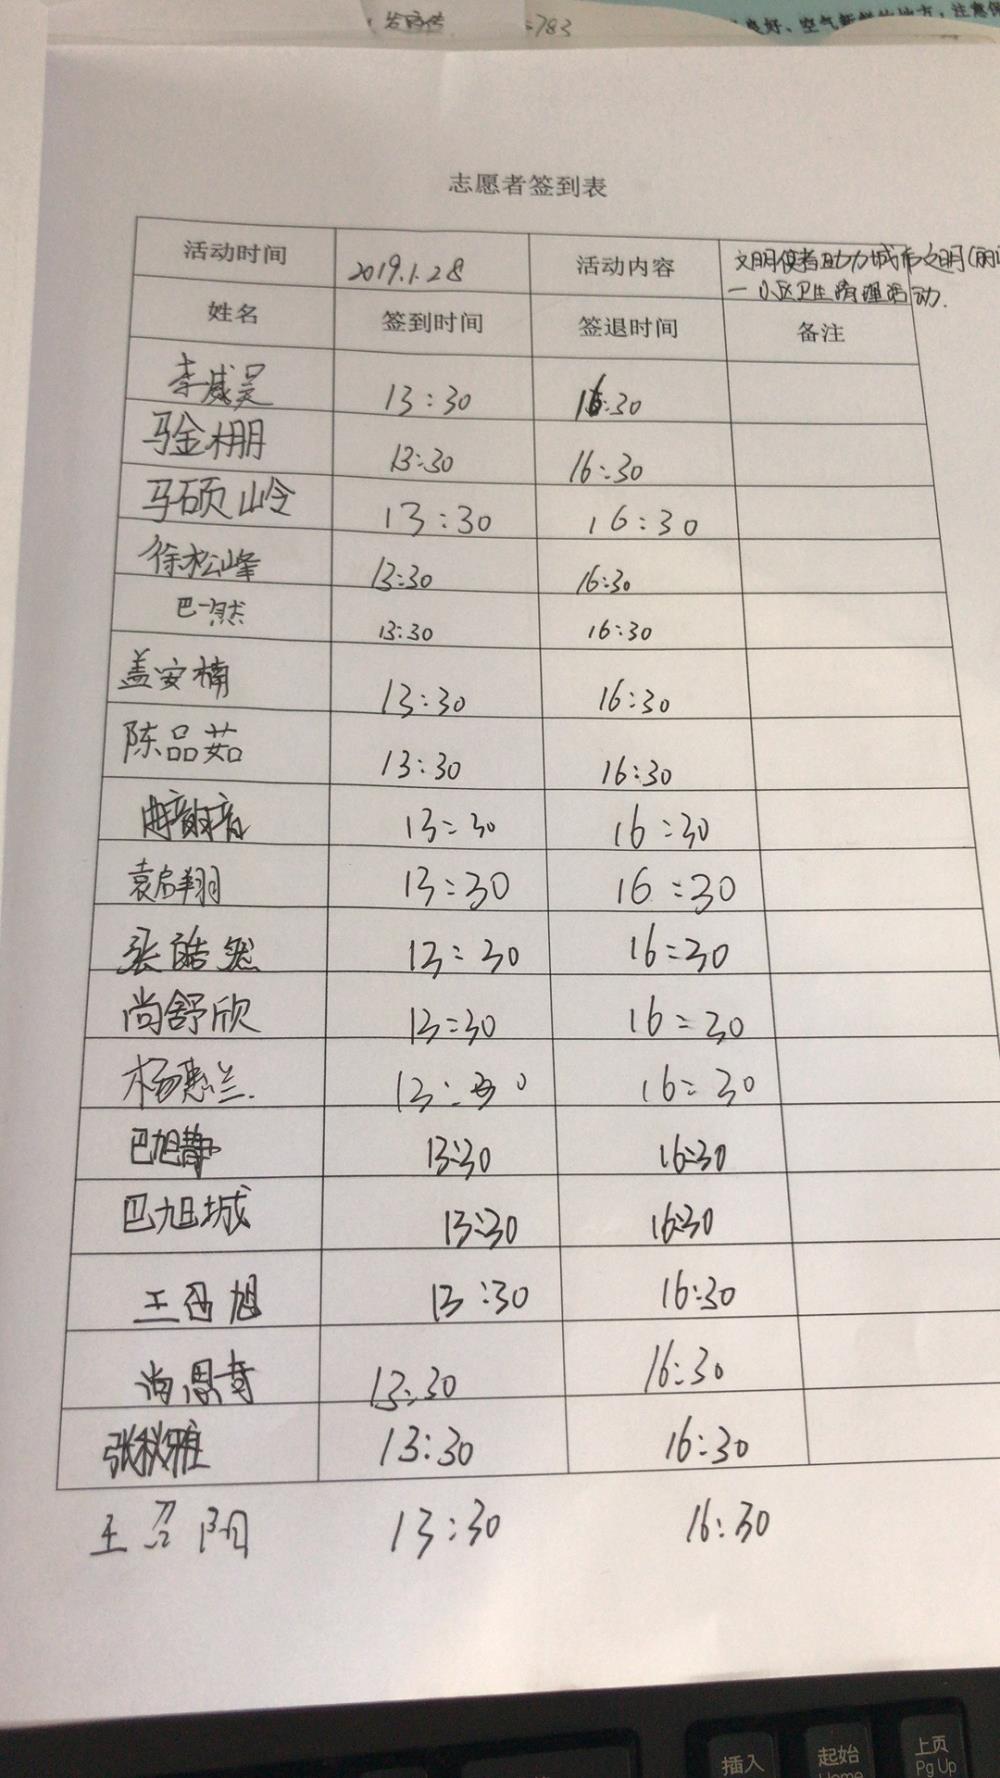 发
=783
良好、空气新鲜的地方，注意保
志愿者签到表
活动时间 2019.1.28 活动内容 文明使者助力城市文明(
一小区卫生清理活动.
姓名 签到时间 签退时间 备注
李咸昊 13:30 16:30
马金栅 13:30 16:30
马硕岭 13:30 16:30
徐松峰 13:30 16:30
巴一然 13:30 16:30
盖安楠 13:30 16:30
陈品茹 13:30 16:30
13:30 16:30
袁启翔 13:30 16:30
张皓然 13:30 16:30
尚舒欣 13:30 16:30
杨惠兰. 13:30 16:30
巴旭静 13:30 16:30
巴旭城 13:30 16:30
王丹旭 13:30 16:30
尚恩奇 13:30 16:30
张秋雅 13:30 16:30
王召阳 13:30 16:30
插入
起始
Home
上页
Pg Up